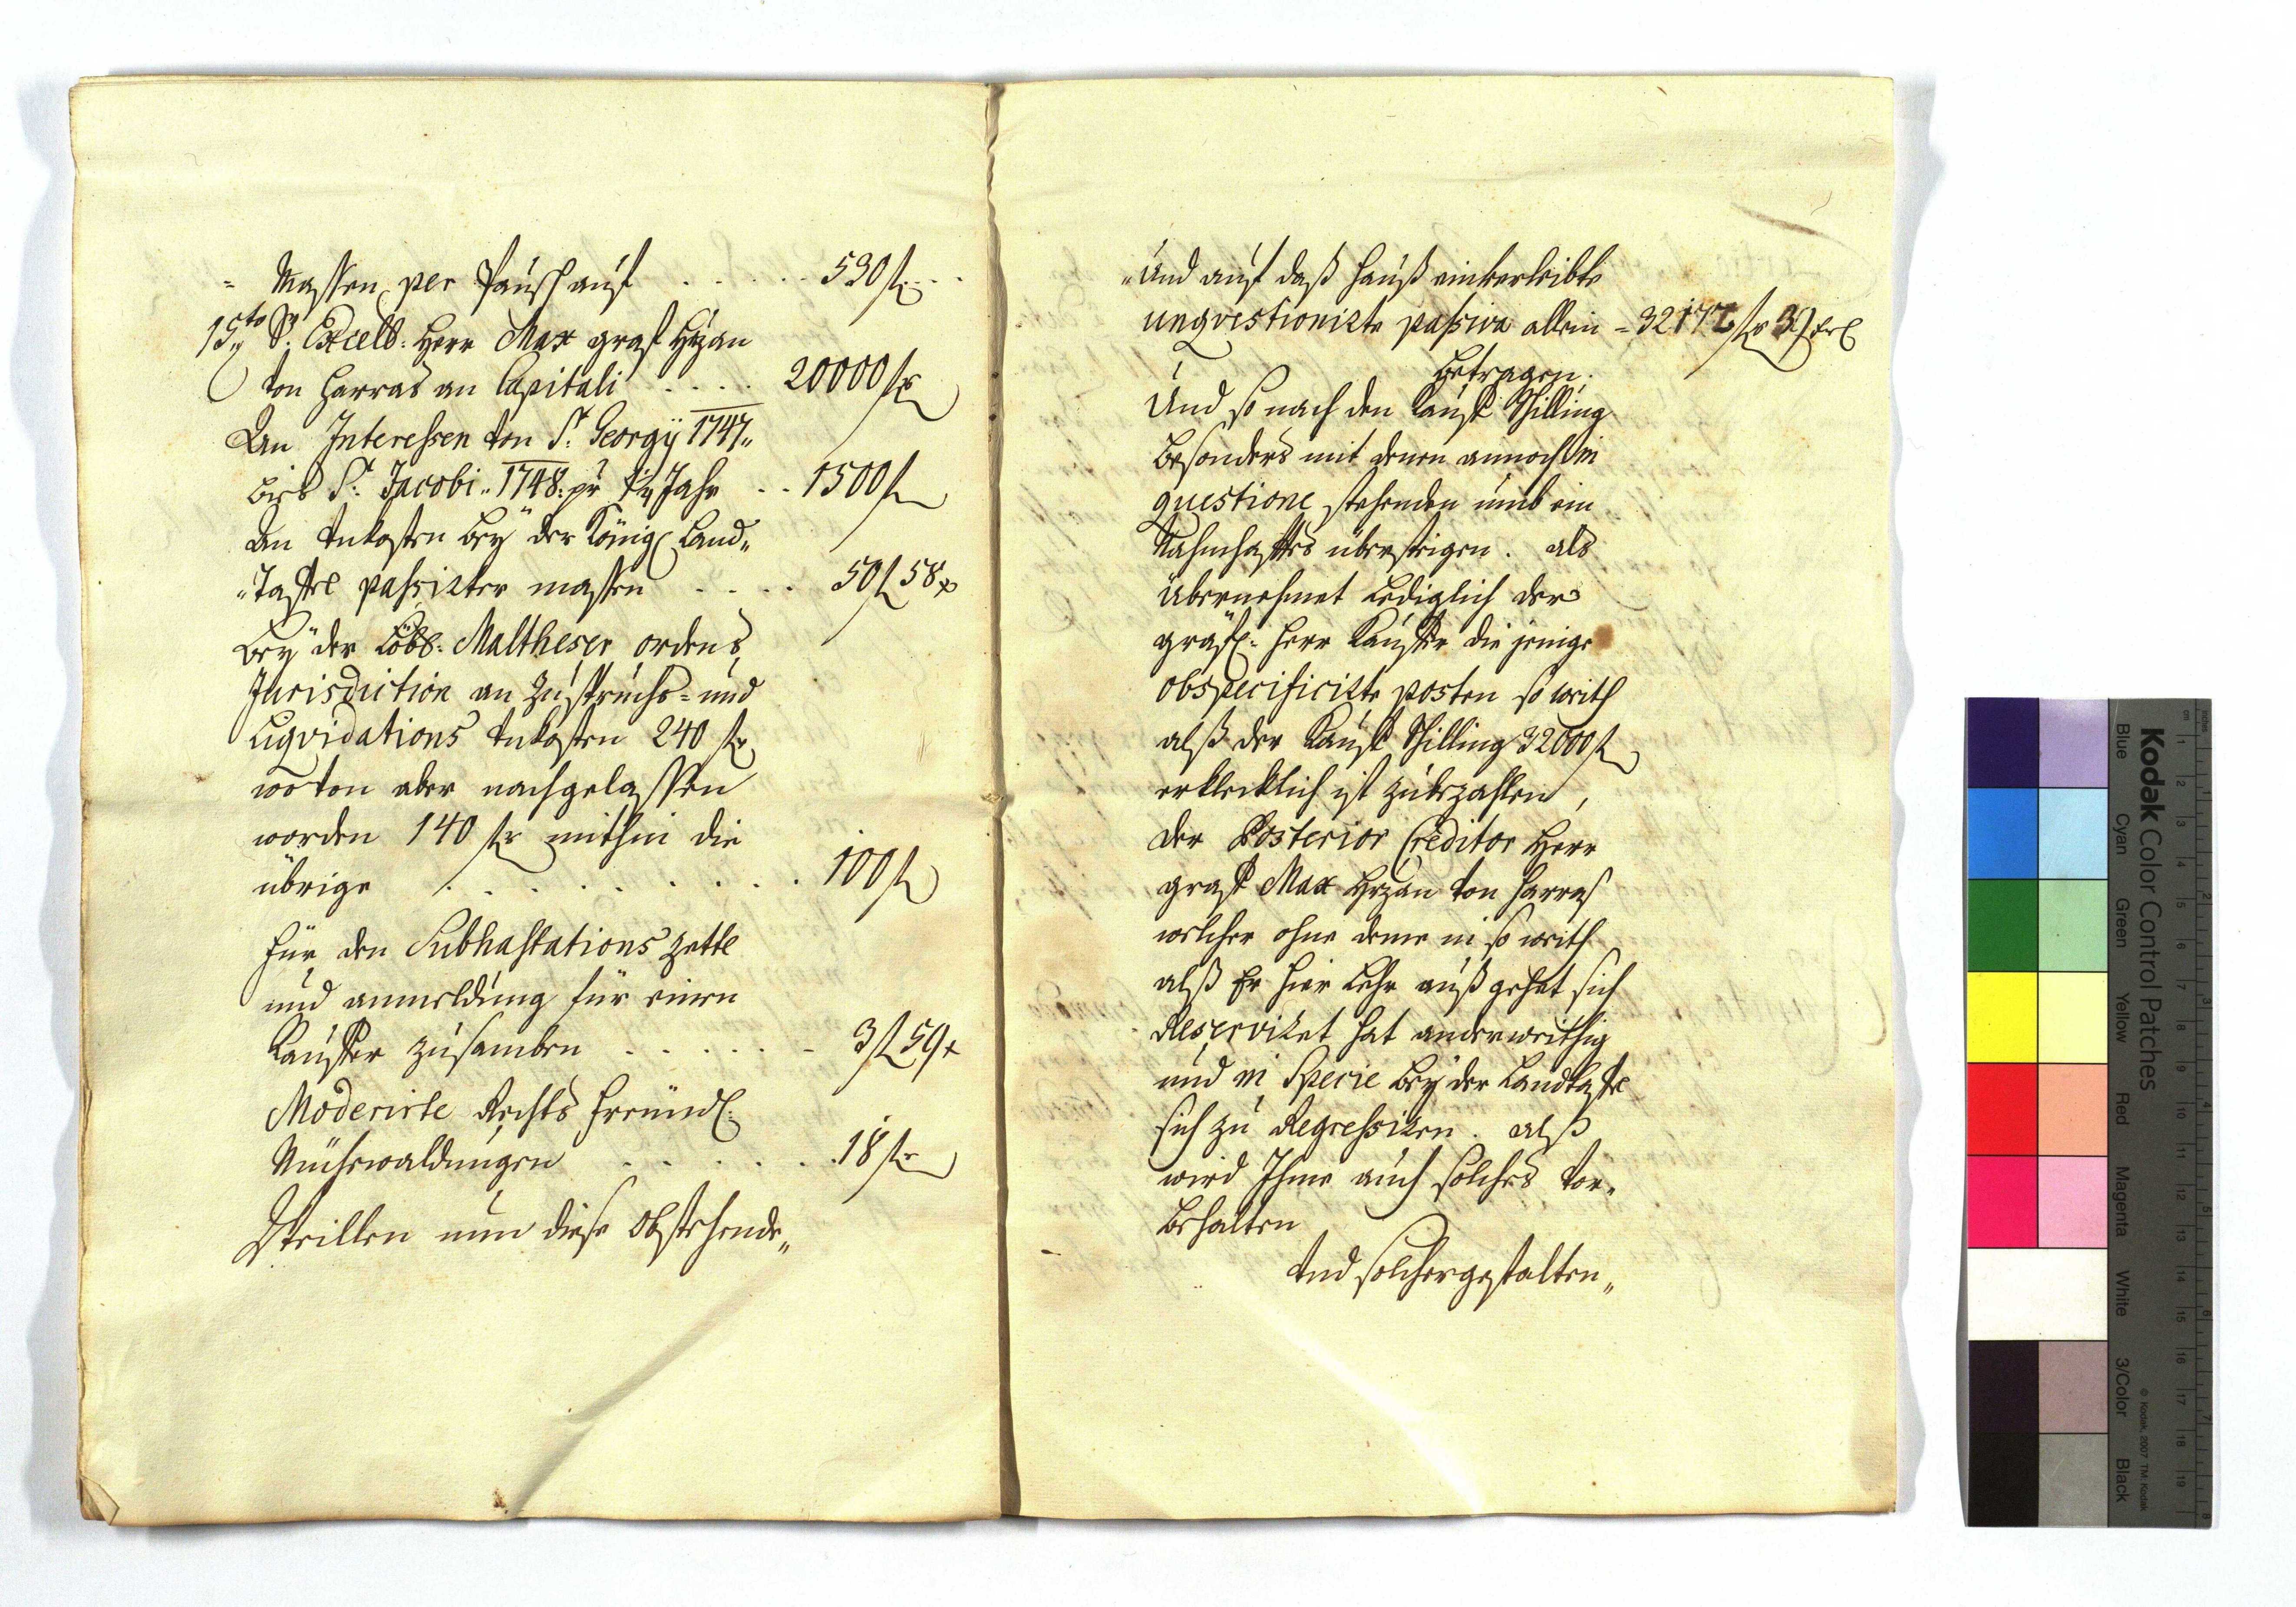 = Massen per Pausch auf . . . . . 530 f
15to Sr. Excell: Herr Max graff Hržan
von Harras an Capitali . . . . 20000 f
An Interessen von St. Georgÿ 1747„
bies St: Jacobi„ 1748: pr Jahr . . 1500 f
An Unkosten beÿ der Königl Land„
„Taffel passirter massen . . . . 50 f 58 x
Beÿ der Löbl: Maltheser ordens
Jurisdiction an Zuspruchs= und
Liqvidations Unkosten 240 f
wovon aber nachgelassen
worden 140 f mithin die
übrige . . . . . . . . . 100 f
Für den Subhastations zettl
und anmeldung für einen
Kauffer zusamben . . . . . . 3 f 59 x
Moderirte Rechts freundl:
Mühewaldungen . . . . . . 18 f
Weillen nun diese Obstehende„
„Und auf daß Hauß einverleibte
ungvestionirte passiva allein = 32172 f
betragen.
Und so nach den Kauff Schilling
besonders mit denen annoch in
questione stehenden umb ein
Nahmhafftes übersteigen. als
übernehmet Lediglich der
gräffl: Herr Kauffer die jenige
obspecificirte posten so weith
alß der Kauff Schilling 32000 f
erklecklich ist zubezahlen,
der Posterior Creditor Herr
graff Max Hrzan von Harras
welcher ohne deme in so weith
alß Er hier Lehr außgehet sich
Reserviret hat anderweithig
und in Specie beÿ der Landtaffl
sich zu Regressiren. alß
wird Ihme auch solches vor„
behalten
Und solchergestalten„